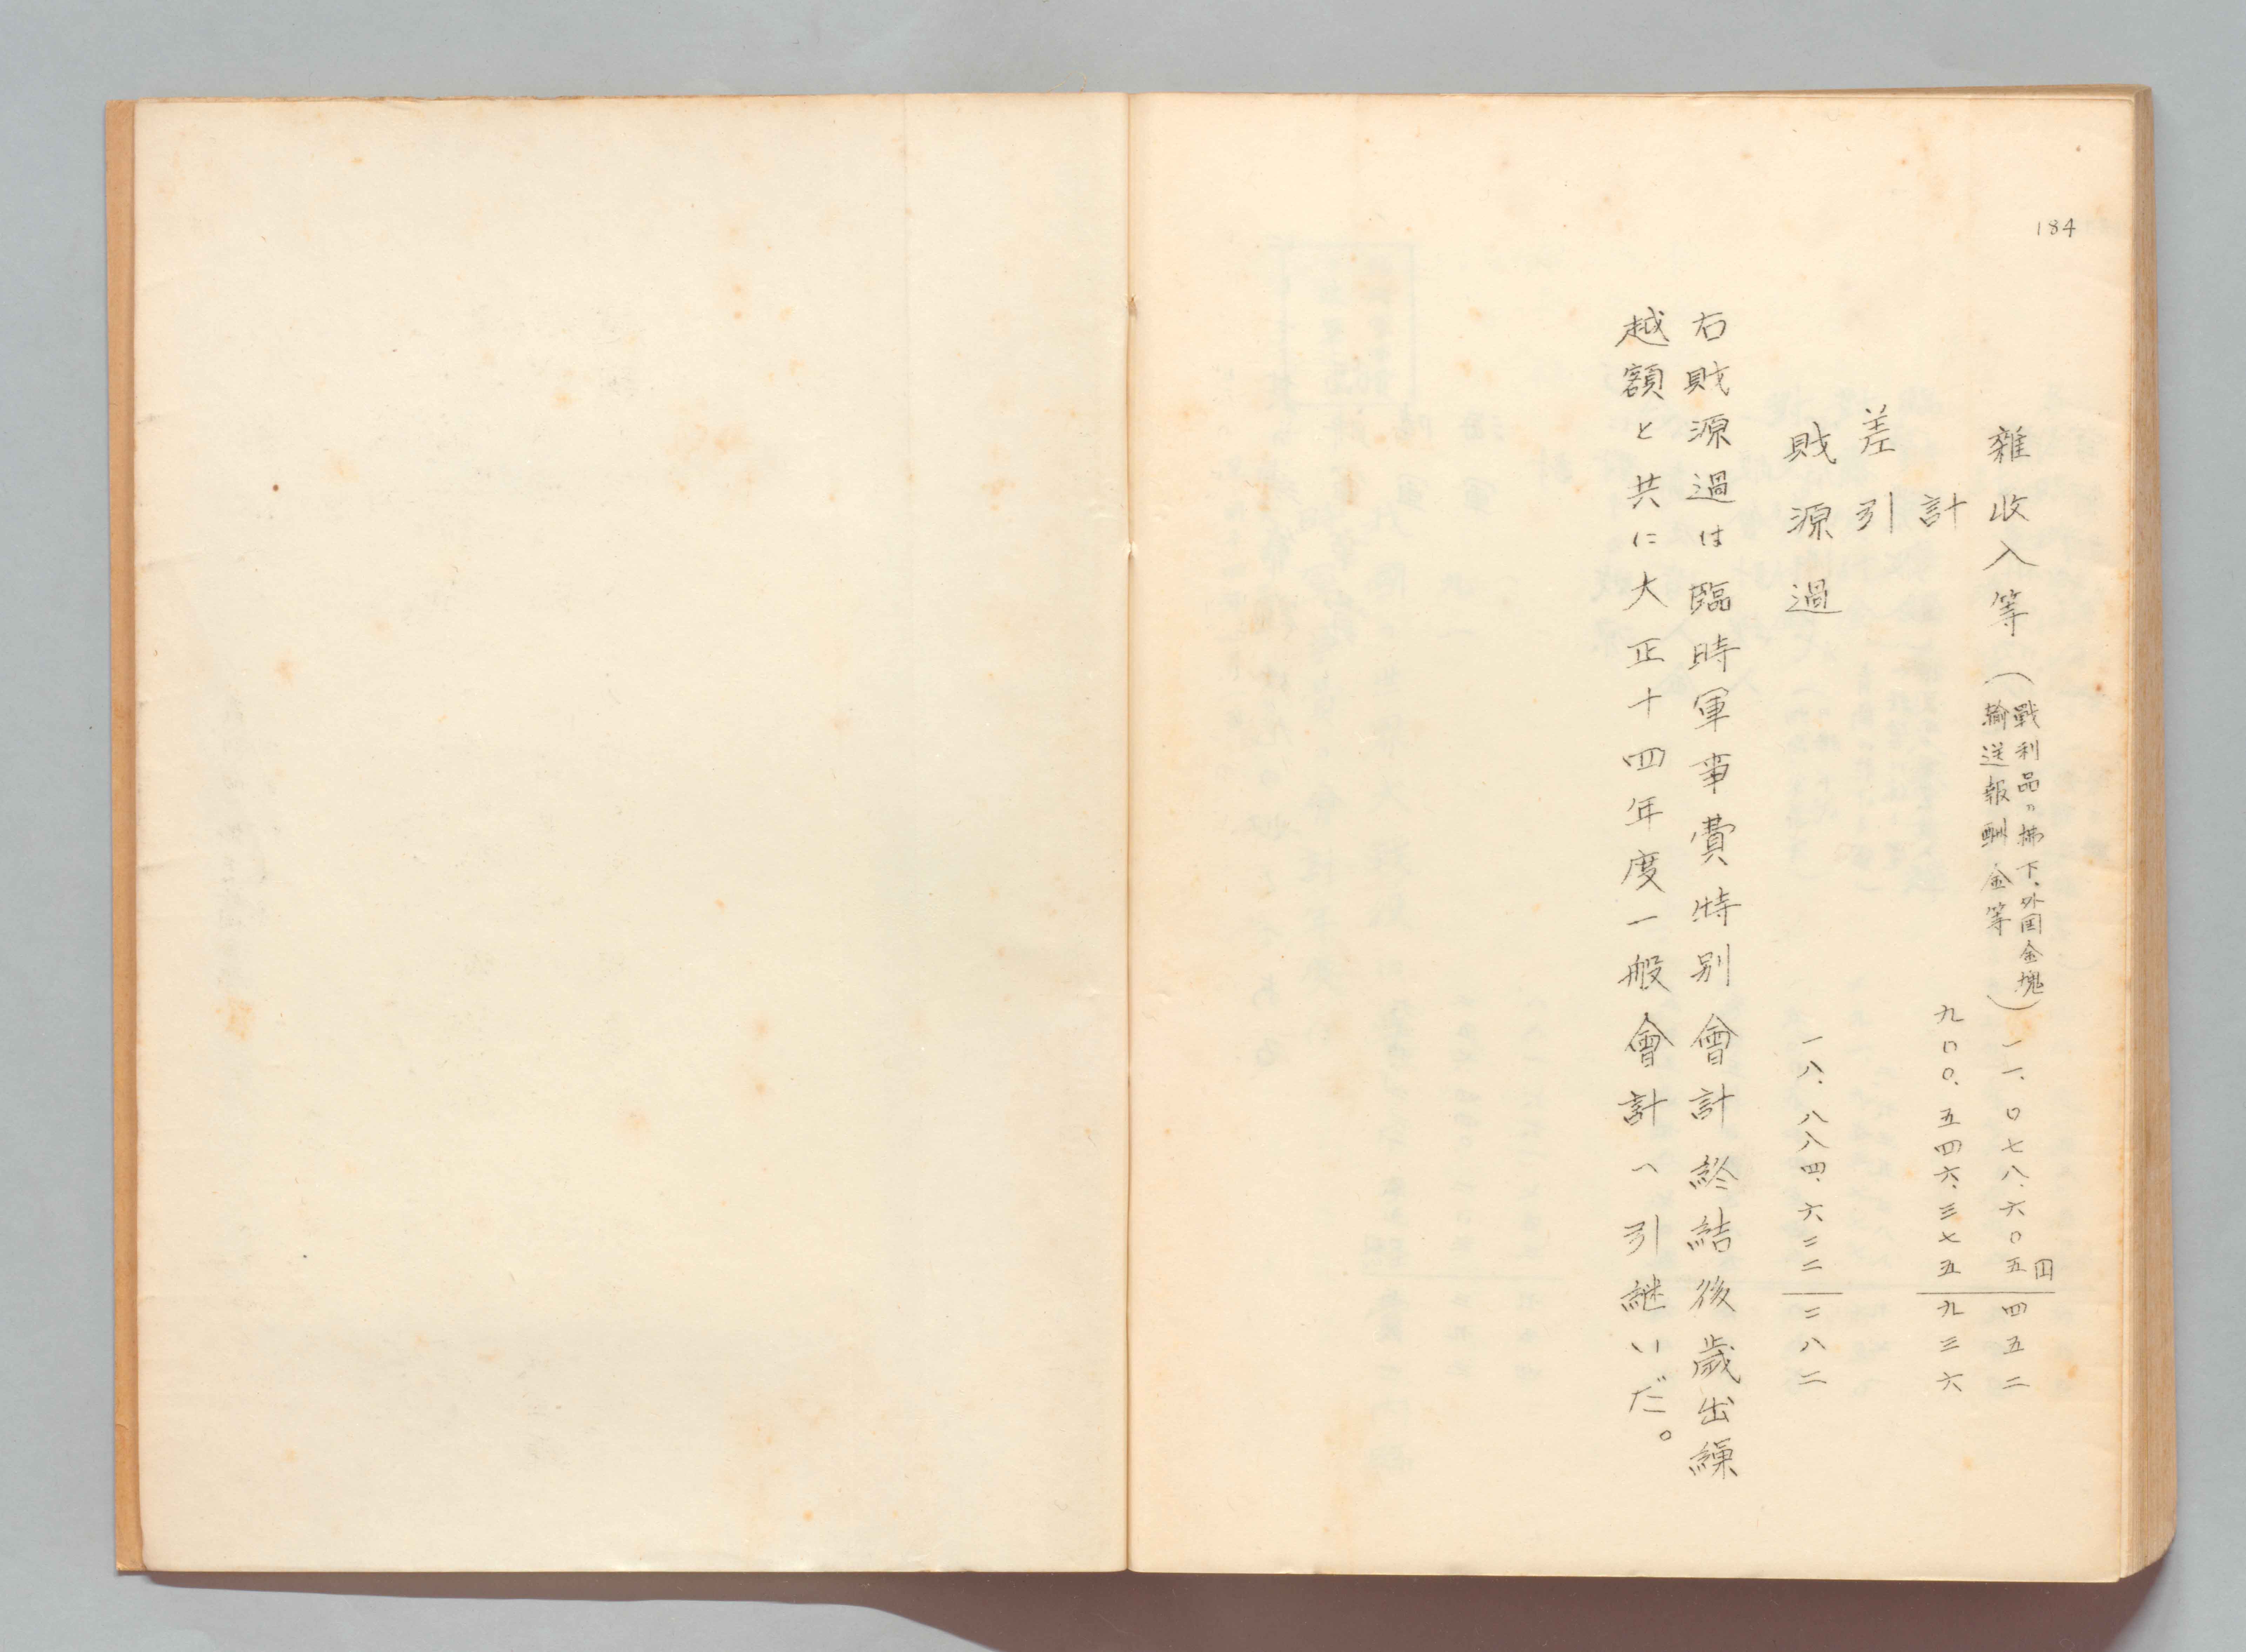 184
雜收入等（戰利品ノ拂下、外国金塊
輸送報酬金等）一一、〇七八、六〇五円四五二
計 九〇〇、五四六、三七五九三六
差引
財源過 一八、八八四、六二二二八二
右財源過は臨時軍事費特別會計終結後歳出繰
越額と共に大正十四年度一般會計へ引継いだ。